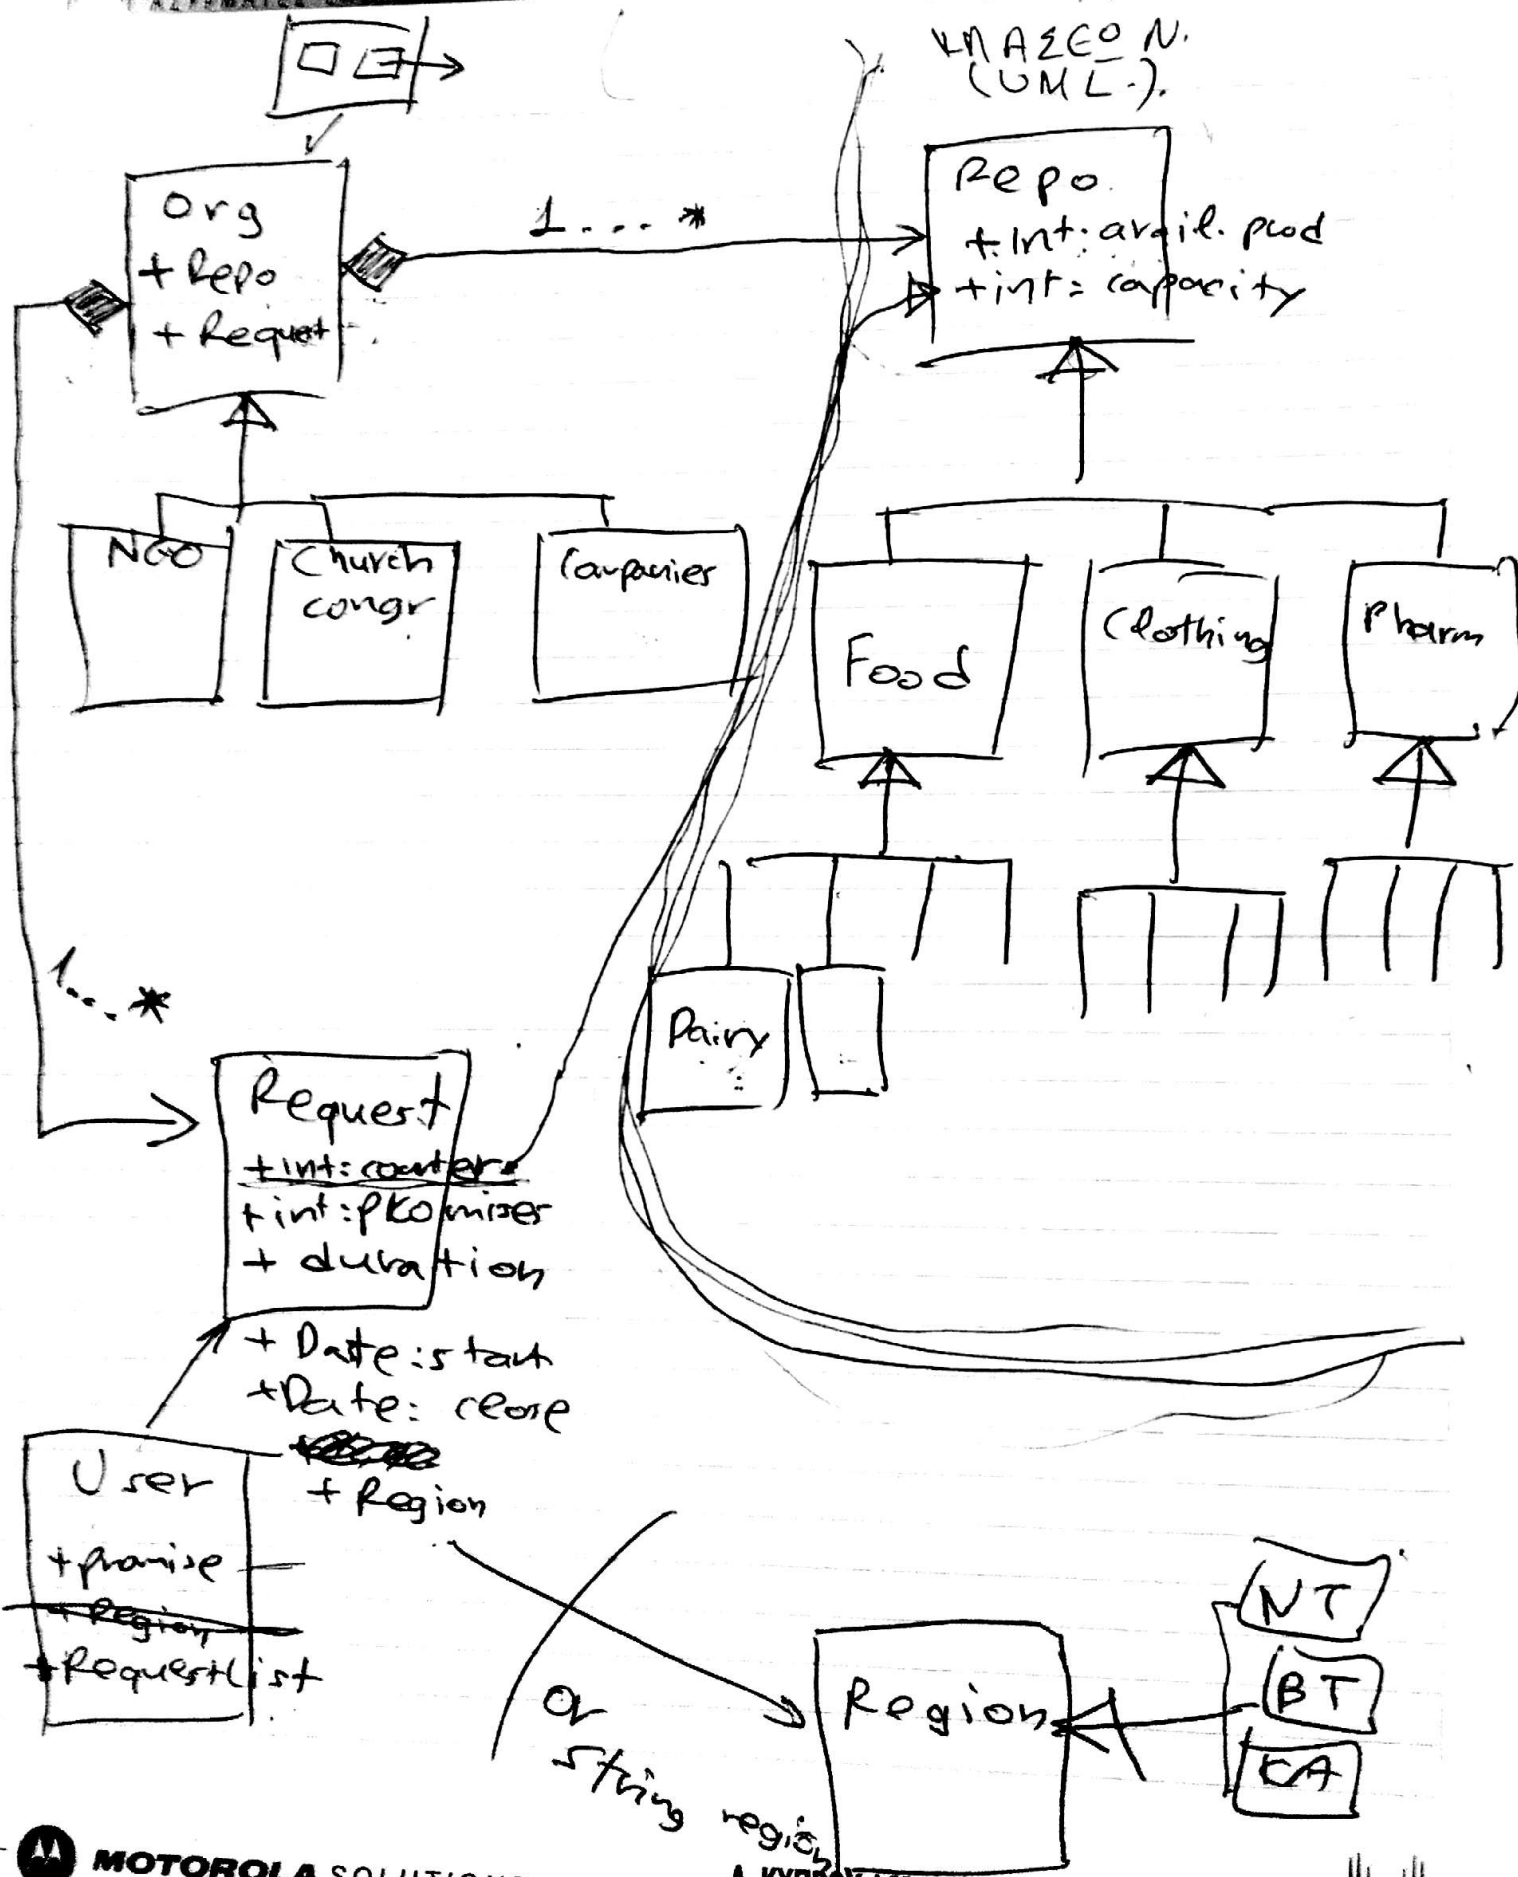 ΚΛΑΣΕΩΝ.
(UML.).
Org
+ Repo
+ Request
1....*
Repo.
+ Int: avail. prod
+ int: capacity
NGO
Church
congr.
Companies
Food
Clothing
Pharm
Dairy
1...*
Request
+ int: counter
+ int: promises
+ duration
+ Date: start
+ Date: close
+ Region
User
+ promise
+ Region
+ RequestList
or
string region
Region
NT
BT
KA
MOTOROLA SOLUTIONS